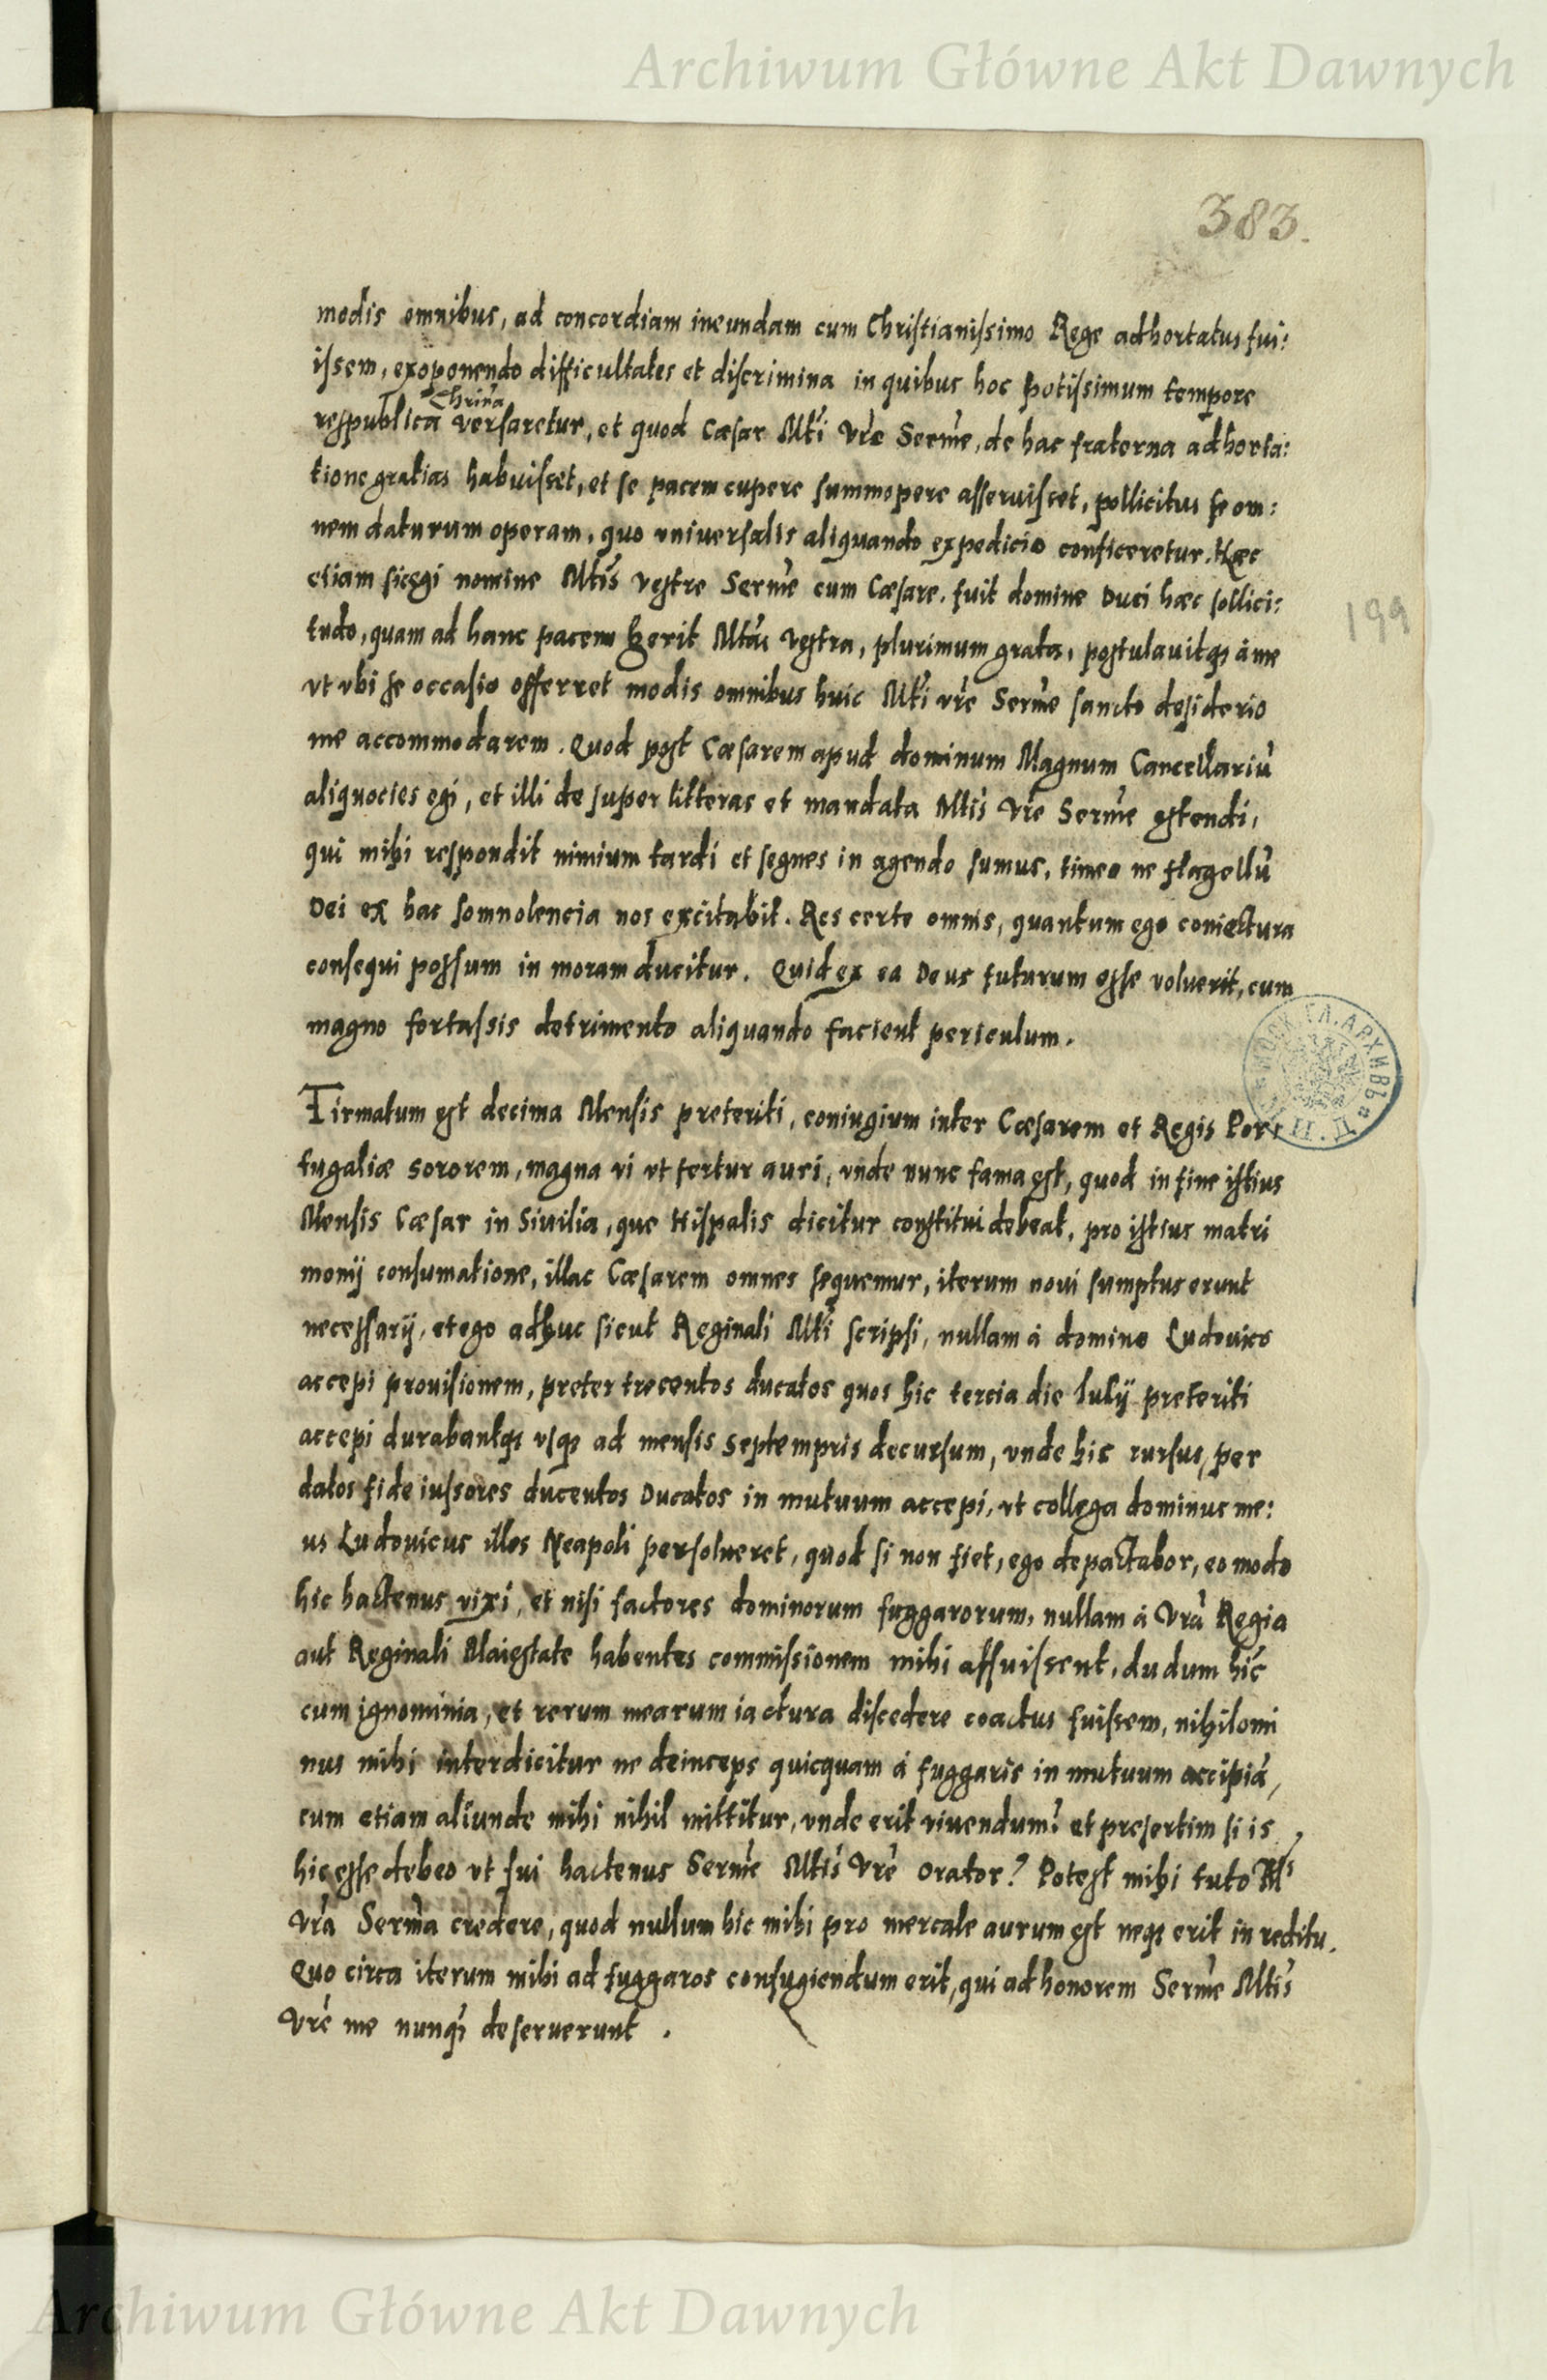 Archiwum Główne Akt Dawnych
383.
modis omnibus, ad concordiam ineundam cum Christianissimo Rege adhortatus fui:
issem, exponendo difficultates et discrimina in quibus hoc potissimum tempore
Chri'na
respublica versaretur, et quod Cæsar Mti Vre Serme, de hac fraterna adhorta:
tione gratias habuisset, et se pacem cupere summopere asseruisset, pollicitus se om:
nem daturum operam, quo vniuersalis aliquando expedicio conficeretur. Hæc
etiam sic egi nomine Mtis vestre Serme cum Cæsare. fuit domine Duci hæc sollici:
tudo, quam ad hanc pacem gerit Mtas vestra, plurimum grata, postulauitq; à me
vt vbi se occasio offerret modis omnibus huic Mti vre Serme sancto desiderio
me accommodarem. Quod post Cæsarem apud dominum Magnum Cancellariū
aliquocies egi, et illi de super litteras et mandata Mtis Vre Serme ostendi,
qui mihi respondit nimium tardi et segnes in agendo sumus, timeo ne flagellū
Dei ex hac somnolencia nos excitabit. Res certe omnis, quantum ego coniectura
consequi possum in moram ducitur. Quid ex ea Deus futurum esse voluerit, cum
magno fortassis detrimento aliquando facient periculum.
199
Firmatum est decima Mensis preteriti, coniugium inter Cæsarem et Regis Por:
tugaliæ sororem, magna vi vt fertur auri, vnde nunc fama est, quod in fine istius
Mensis Cæsar in Siuilia, que Hispalis dicitur constitui debeat, pro istius matri
monij consumatione, illac Cæsarem omnes sequemur, iterum noui sumptus erunt
necessarij, et ego adhuc sicut Reginali Mti scripsi, nullam à domino Ludouico
accepi prouisionem, preter trecentos ducatos quos hic tercia die Iulij preteriti
accepi durabantq; vsq; ad mensis septempris decursum, vnde hic rursus, per
datos fide iussores ducentos Ducatos in mutuum accepi, vt collega dominus me:
us Ludouicus illos Neapoli persolueret, quod si non fiet, ego depactabor, eo modo
hic hactenus vixi, et nisi factores dominorum fuggarorum, nullam à Vra Regia
aut Reginali Maiestate habentes commissionem mihi affuissent, dudum hic
cum ignominia, et rerum mearum iactura discedere coactus fuissem, nihilomi
nus mihi interdicitur ne deinceps quicquam à fuggaris in mutuum accipiā,
cum etiam aliunde mihi nihil mittitur, vnde erit viuendum? et presertim si is
hic esse debeo vt fui hactenus Serme Mtis Vre Orator? Potest mihi tuto Mtas
Vra Serma credere, quod nullum hic mihi pro mercale aurum est neq; erit in reditu.
Quo circa iterum mihi ad fuggaros confugiendum erit, qui ad honorem Serme Mtis
Vre me nunq; deseruerunt.
Archiwum Główne Akt Dawnych